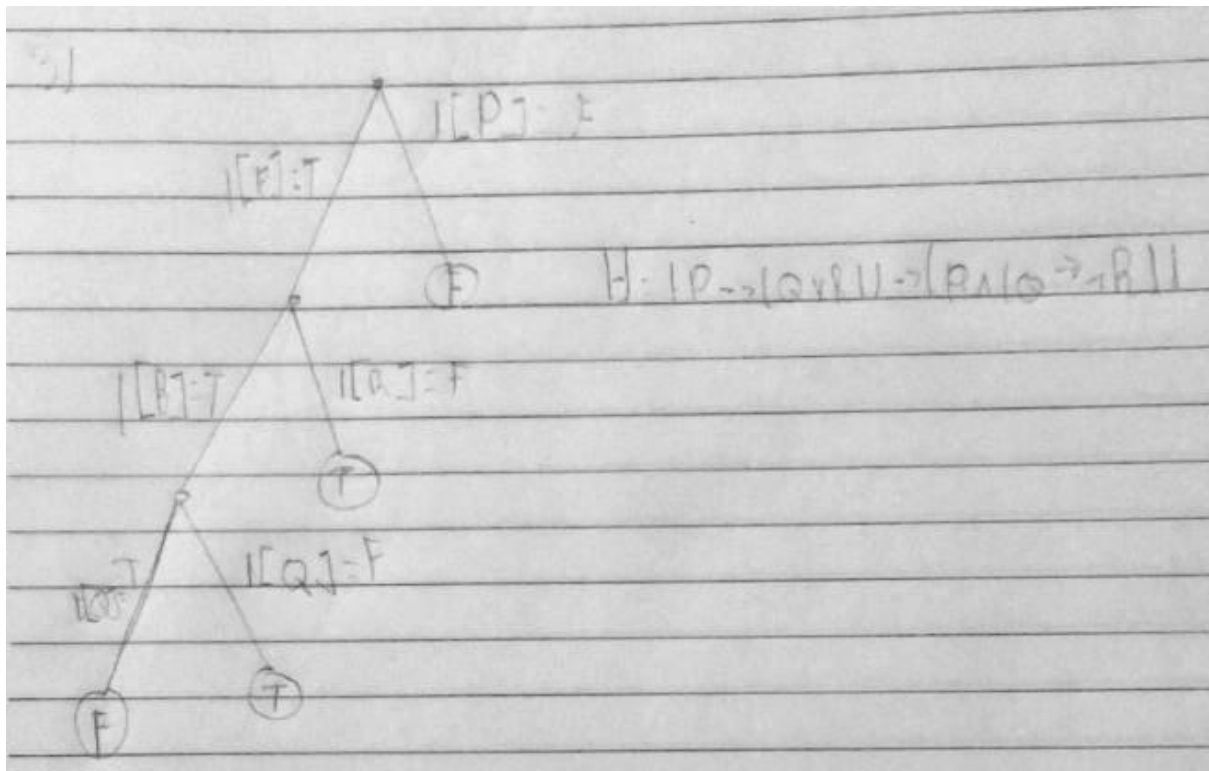 3)
I[P]=F
I[P]=T
F
H=(P→(Q∨R))→(P∧(Q→¬R))
I[R]=T
I[R]=F
T
I[Q]=T
I[Q]=F
F
T